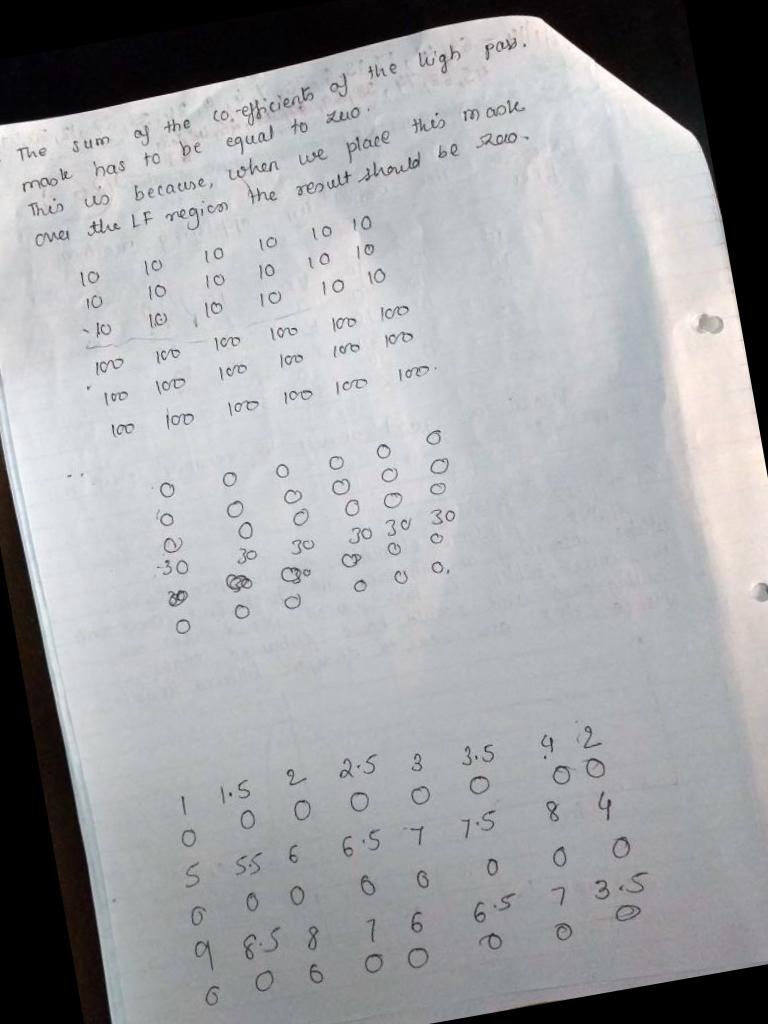 The sum of the co.efficients of the high pass.
mask has to be equal to zero.
This is because, when we place this mask
over the LF region the result should be zero.
10 10 10 10 10 10
10 10 10 10 10 10
10 10 10 10 10 10
100 100 100 100 100 100
100 100 100 100 100 100
100 100 100 100 100 100.
0 0 0 0 0 0
0 0 0 0 0 0
0 0 0 0 0 0
30 30 30 30 30 30
0 0 0
0 0 0 0 0 0.
1 1.5 2 2.5 3 3.5 4 2
0 0 0 0 0 0 0 0
5 5.5 6 6.5 7 7.5 8 4
0 0 0 0 0 0 0 0
9 8.5 8 7 6 6.5 7 3.5
0 0 0 0 0 0 0 0